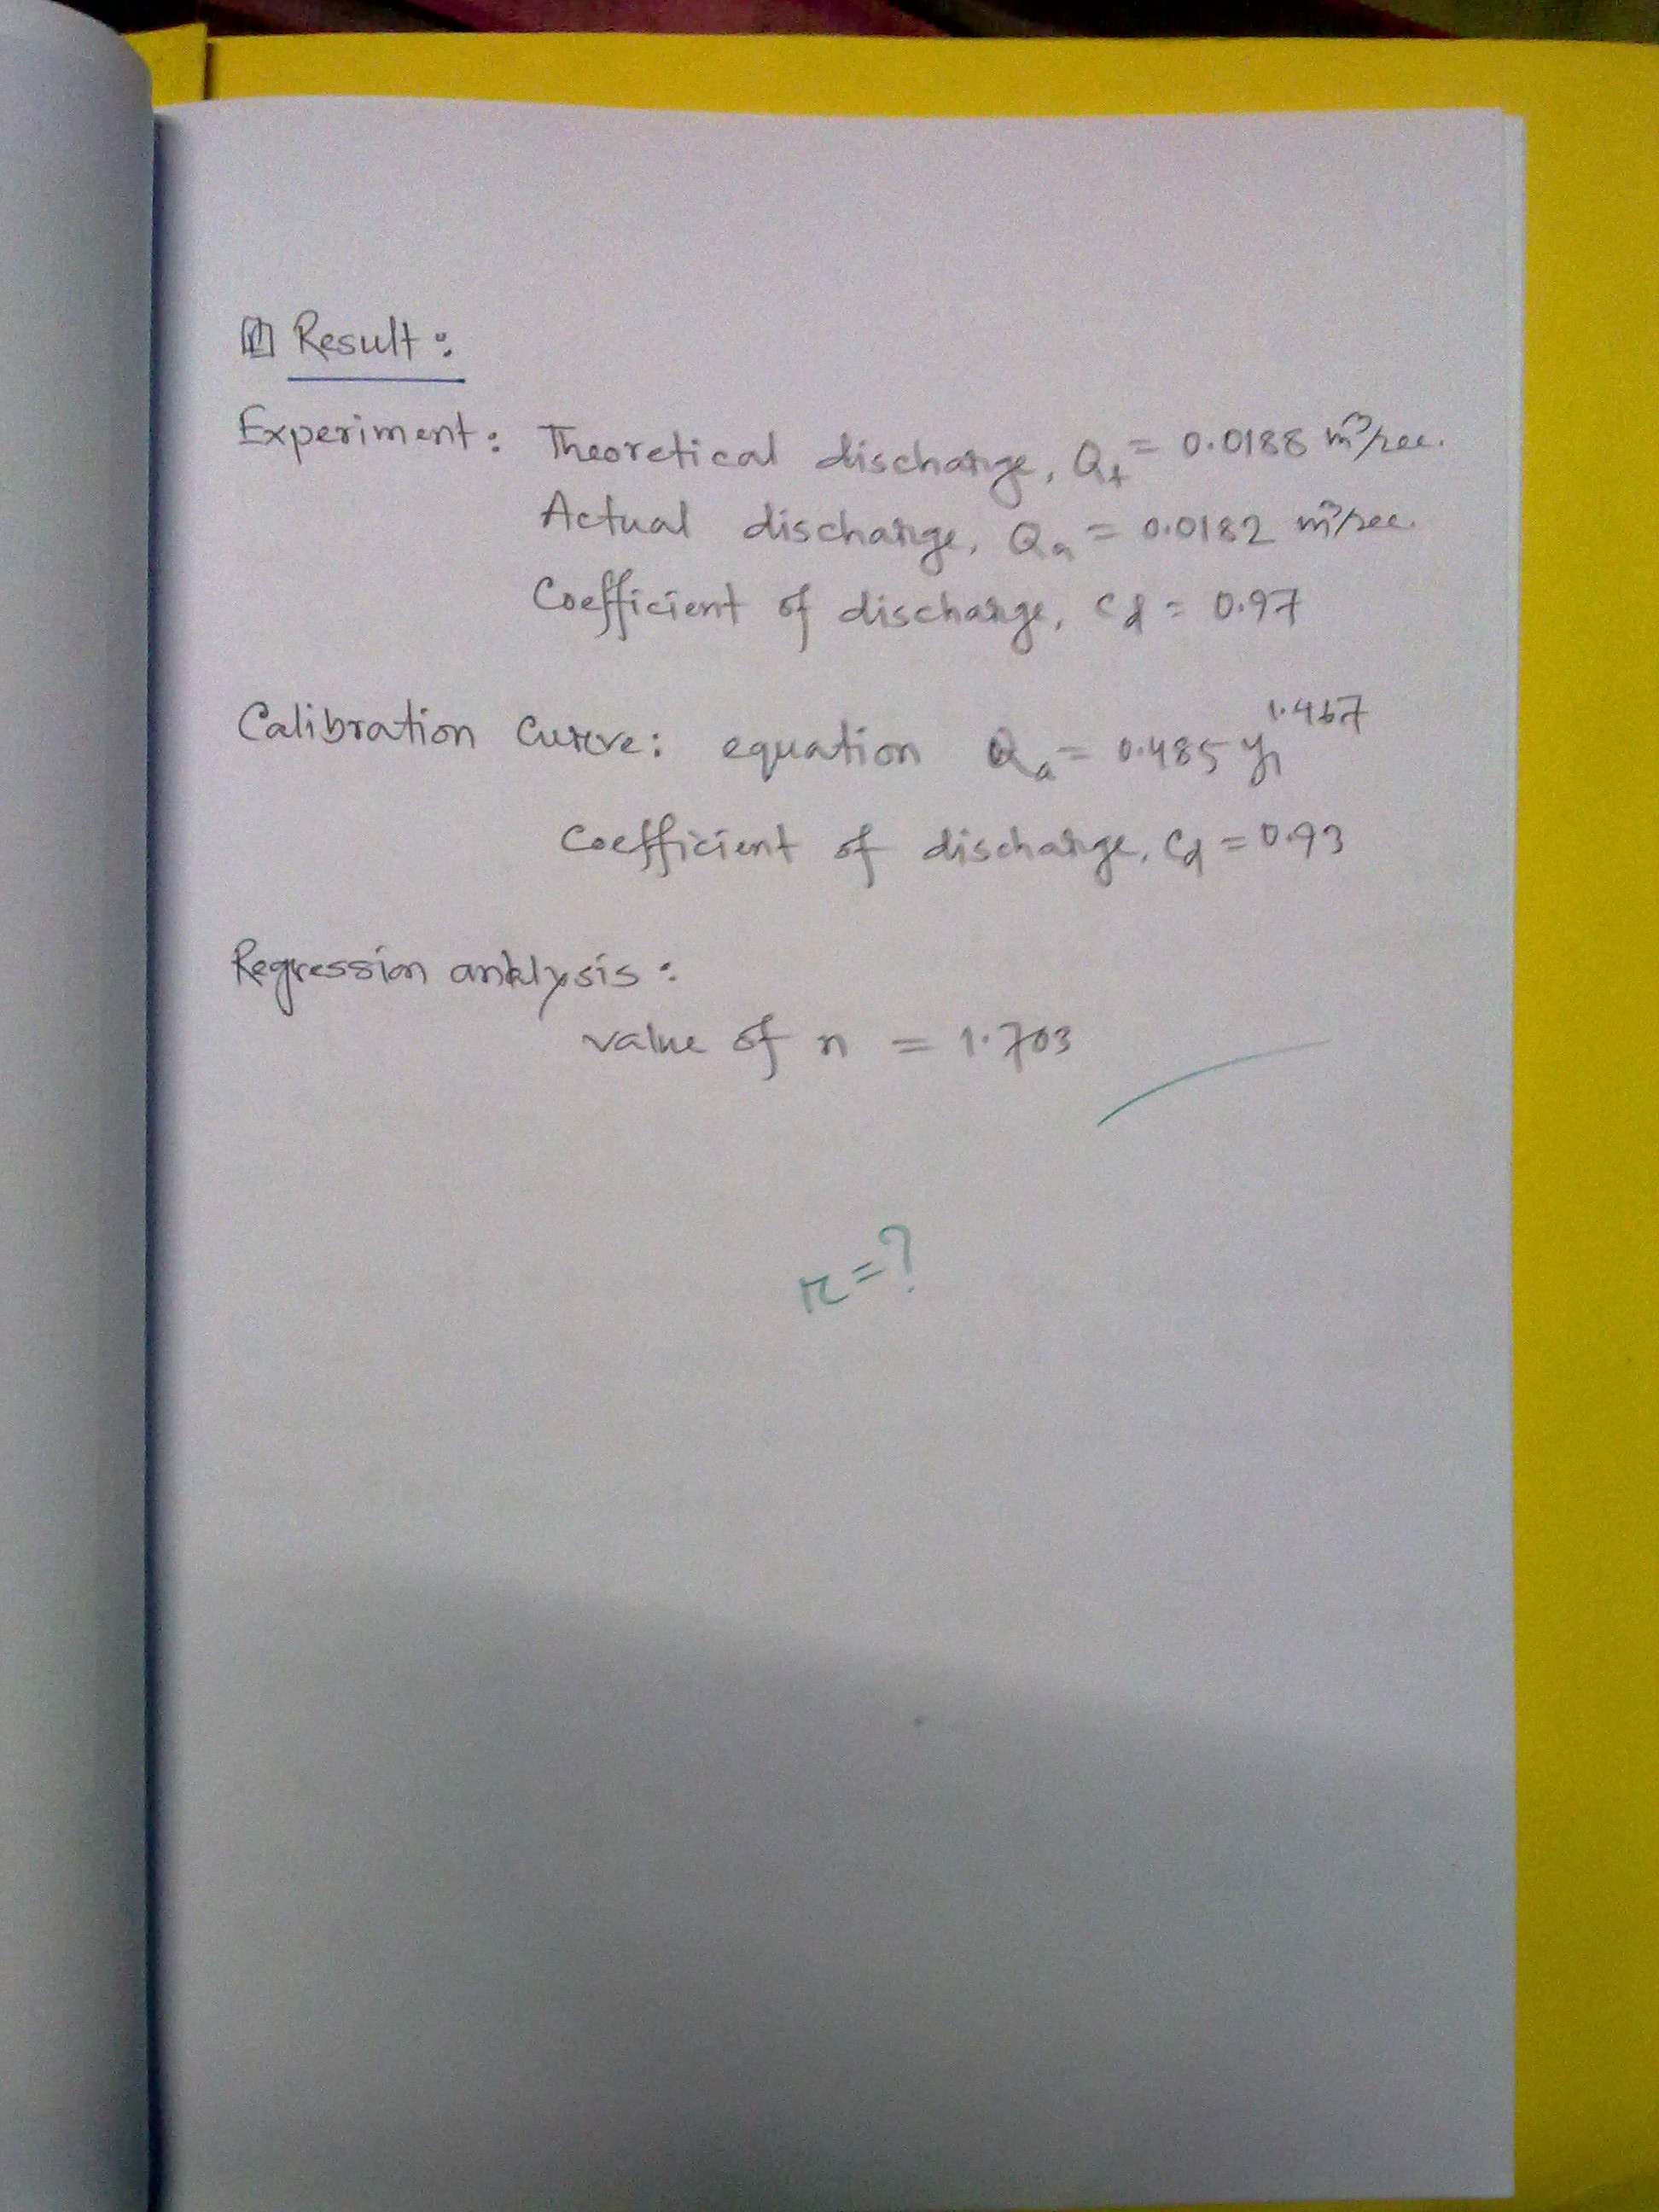 Result:
Experiment: Theoretical discharge, Qt = 0.0188 m³/sec.
Actual discharge, Qa = 0.0182 m³/sec.
Coefficient of discharge, Cd = 0.97
Calibration Curve: equation Qa = 0.485 y₁^1.467
Coefficient of discharge, Cd = 0.93
Regression analysis:
value of n = 1.703
r=?